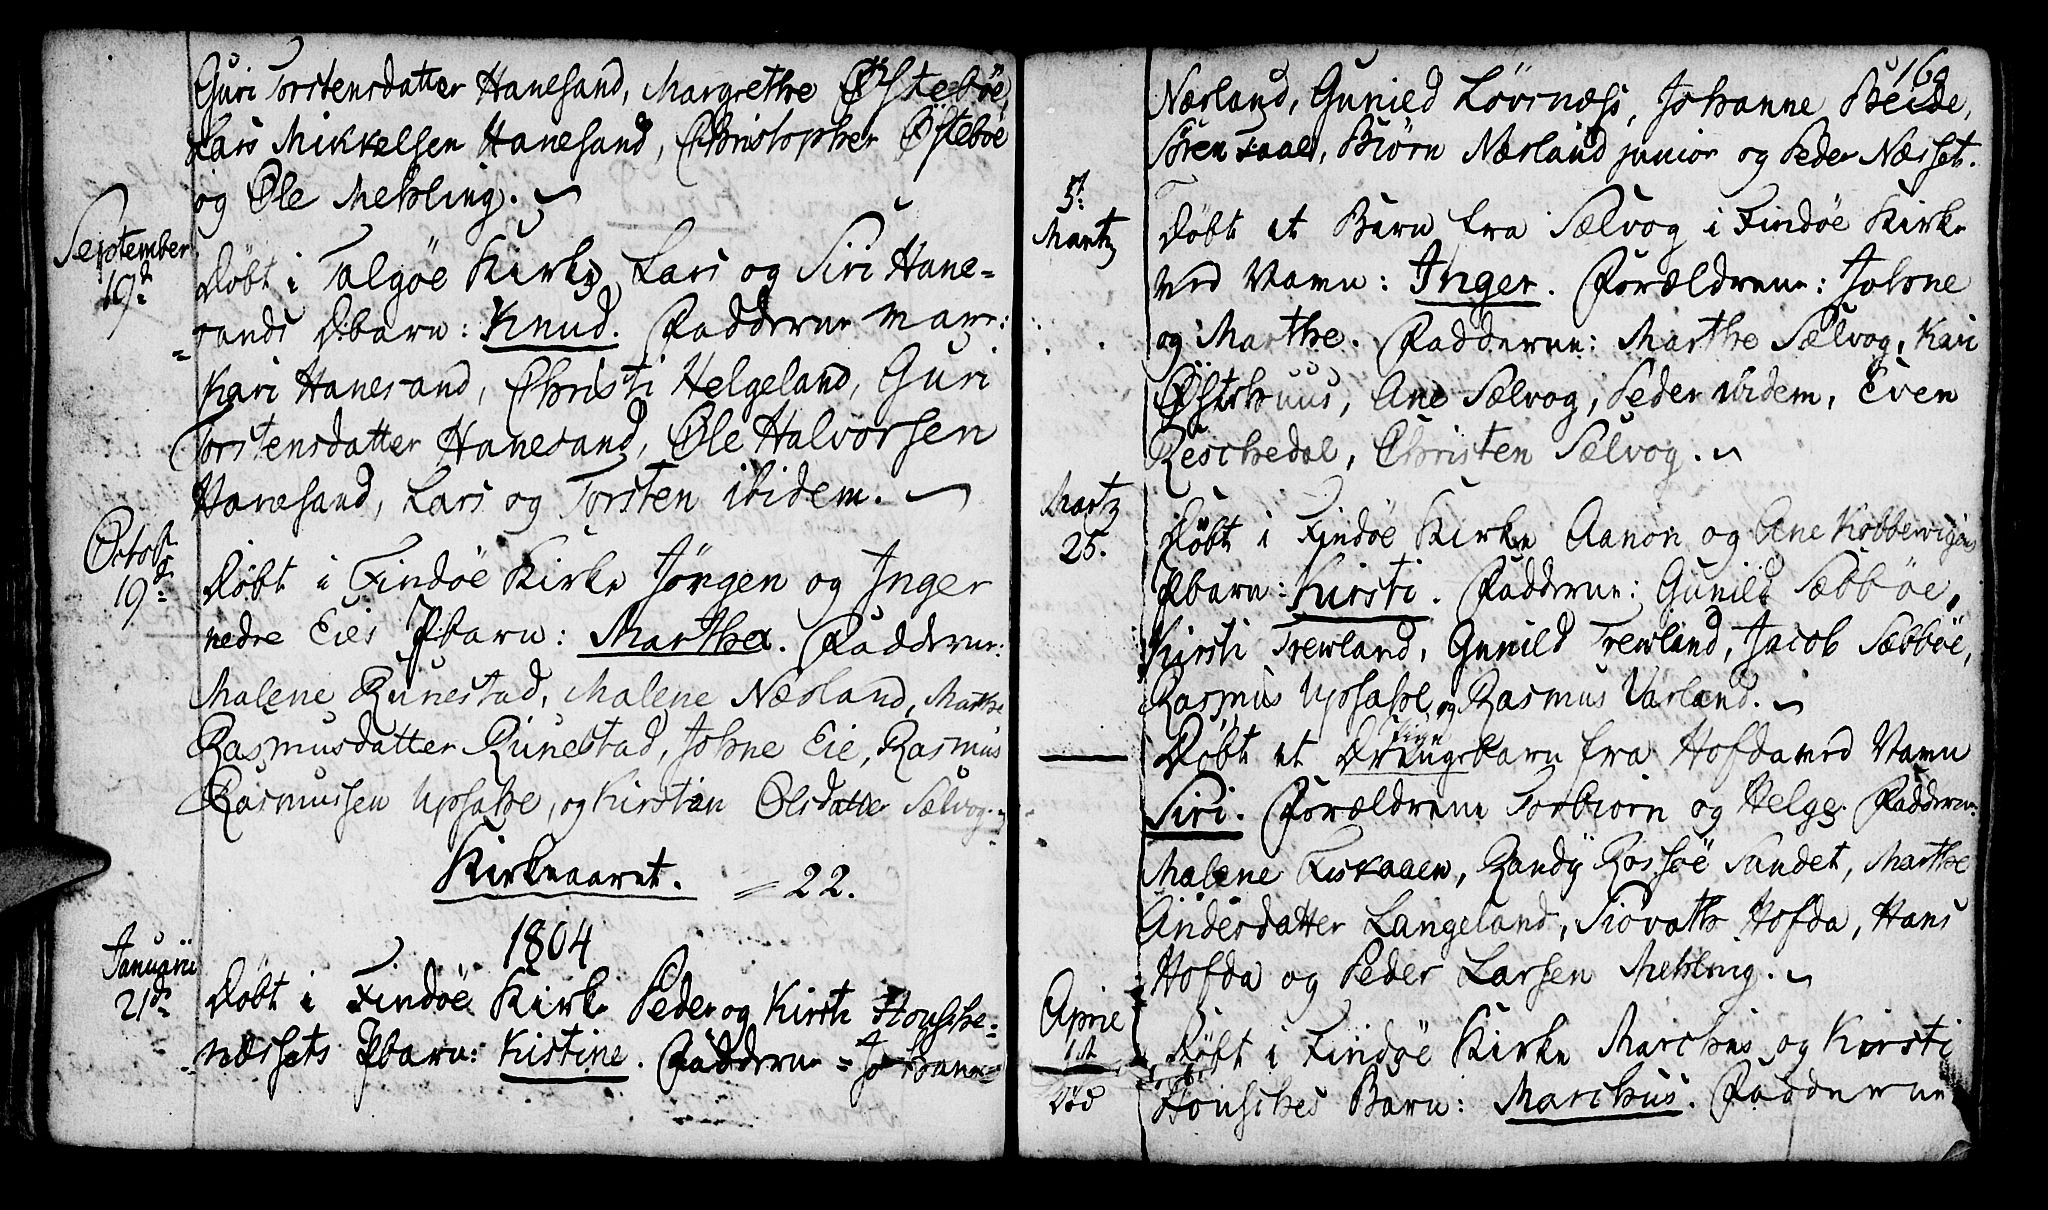 Guri Torstensdatter Hanesand, Margrethe Østebøe,
Lars Mikkelsen Hanesand, Christopher Østebøe
og Ole Mehling.
September
19d
Døbt i Talgøe Kirke Lars og Siri Hane-
sands Dbarn: Knud. Fadderne vare:
Kari Hanesand, Christi Helgeland, Guri
Torstensdatter Hanesand, Ole Halvorsen
Hanesand, Lars og Torsten ibidem.
Octobr
19d
Døbt i Findøe Kirke Jørgen og Inger
nedre Eies Pbarn: Martha. Fadderne:
Malene Runestad, Malene Nærland, Marthe
Rasmusdatter Runestad, Johne Eie, Rasmus
Rasmussen Upsahe, og Kirsten Olsdatter Sælvog.
Kirkeaaret. = 22.
1804
Januarii
21d
Døbt i Findøe Kirke Peder og Kirsti Houske-
næssets Pbarn: Kistine. Fadderne = Johanne
169
Nærland, Gunild Løvsnæss, Johanne Beide,
Søren Faae, Biørn Nærland junior og Peder Næsset.
5t
Martz
Døbt et Barn fra Sælvog i Findøe Kirke
ved Navn: Inger. Forældrene: Johne
og Marthe. Fadderne: Marthe Sælvog, Kari
Østhuus, Ane Sælvog, Peder ibidem, Even
Reschedal, Christen Sælvog.
Martz
25.
Døbt i Findøe Kirke Aanon og Ane Kobbervigs
Pbarn: Kirsti. Fadderne: Gunild Sæbbøe,
Kirsti Trewland, Gunild Trewland, Jacob Sæbbøe,
Rasmus Upsahe og Rasmus Varland.
Pige
Døbt et Drengebarn fra Hofda ved Navn
Siri. Forældrene Torbiorn og Helge. Fadderne:
Malene Fiskaaen, Randy Rossøe Sandet, Marthe
Andersdatter Langeland, Siovath Hofda, Hans
Hofda og Peder Larsen Mehling.
Aprie
1st
Død
Døbt i Findøe Kirke Marchus og Kirsti
Houskes Barn: Marchus. Fadderne